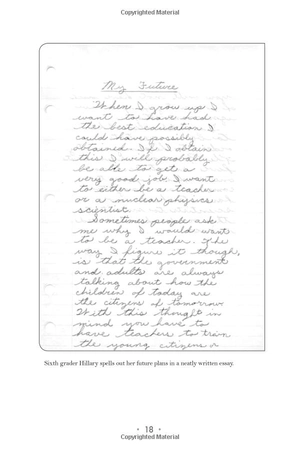 Copyrighted Material
My Future
When I grow up I
want to have had
the best education I
could have possibly
obtained. If I obtain
this I will probably
be able to get a
very good job. I want
to either be a teacher
or a nuclear physics
scientist.
Sometimes people ask
me why I would want
to be a teacher. The
way I figure it though,
is that the government
and adults are always
talking about how the
children of today are
the citizens of tomorrow
With this thought in
mind you have to
have teachers to train
the young citizens
Sixth grader Hillary spells out her future plans in a neatly written essay.
• 18 •
Copyrighted Material